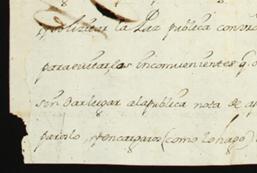 la Paz publica
para evitar, los inconvenientes y
sin dar lugar a la publica nota de
pararlo, y encargaros (como lo hago)